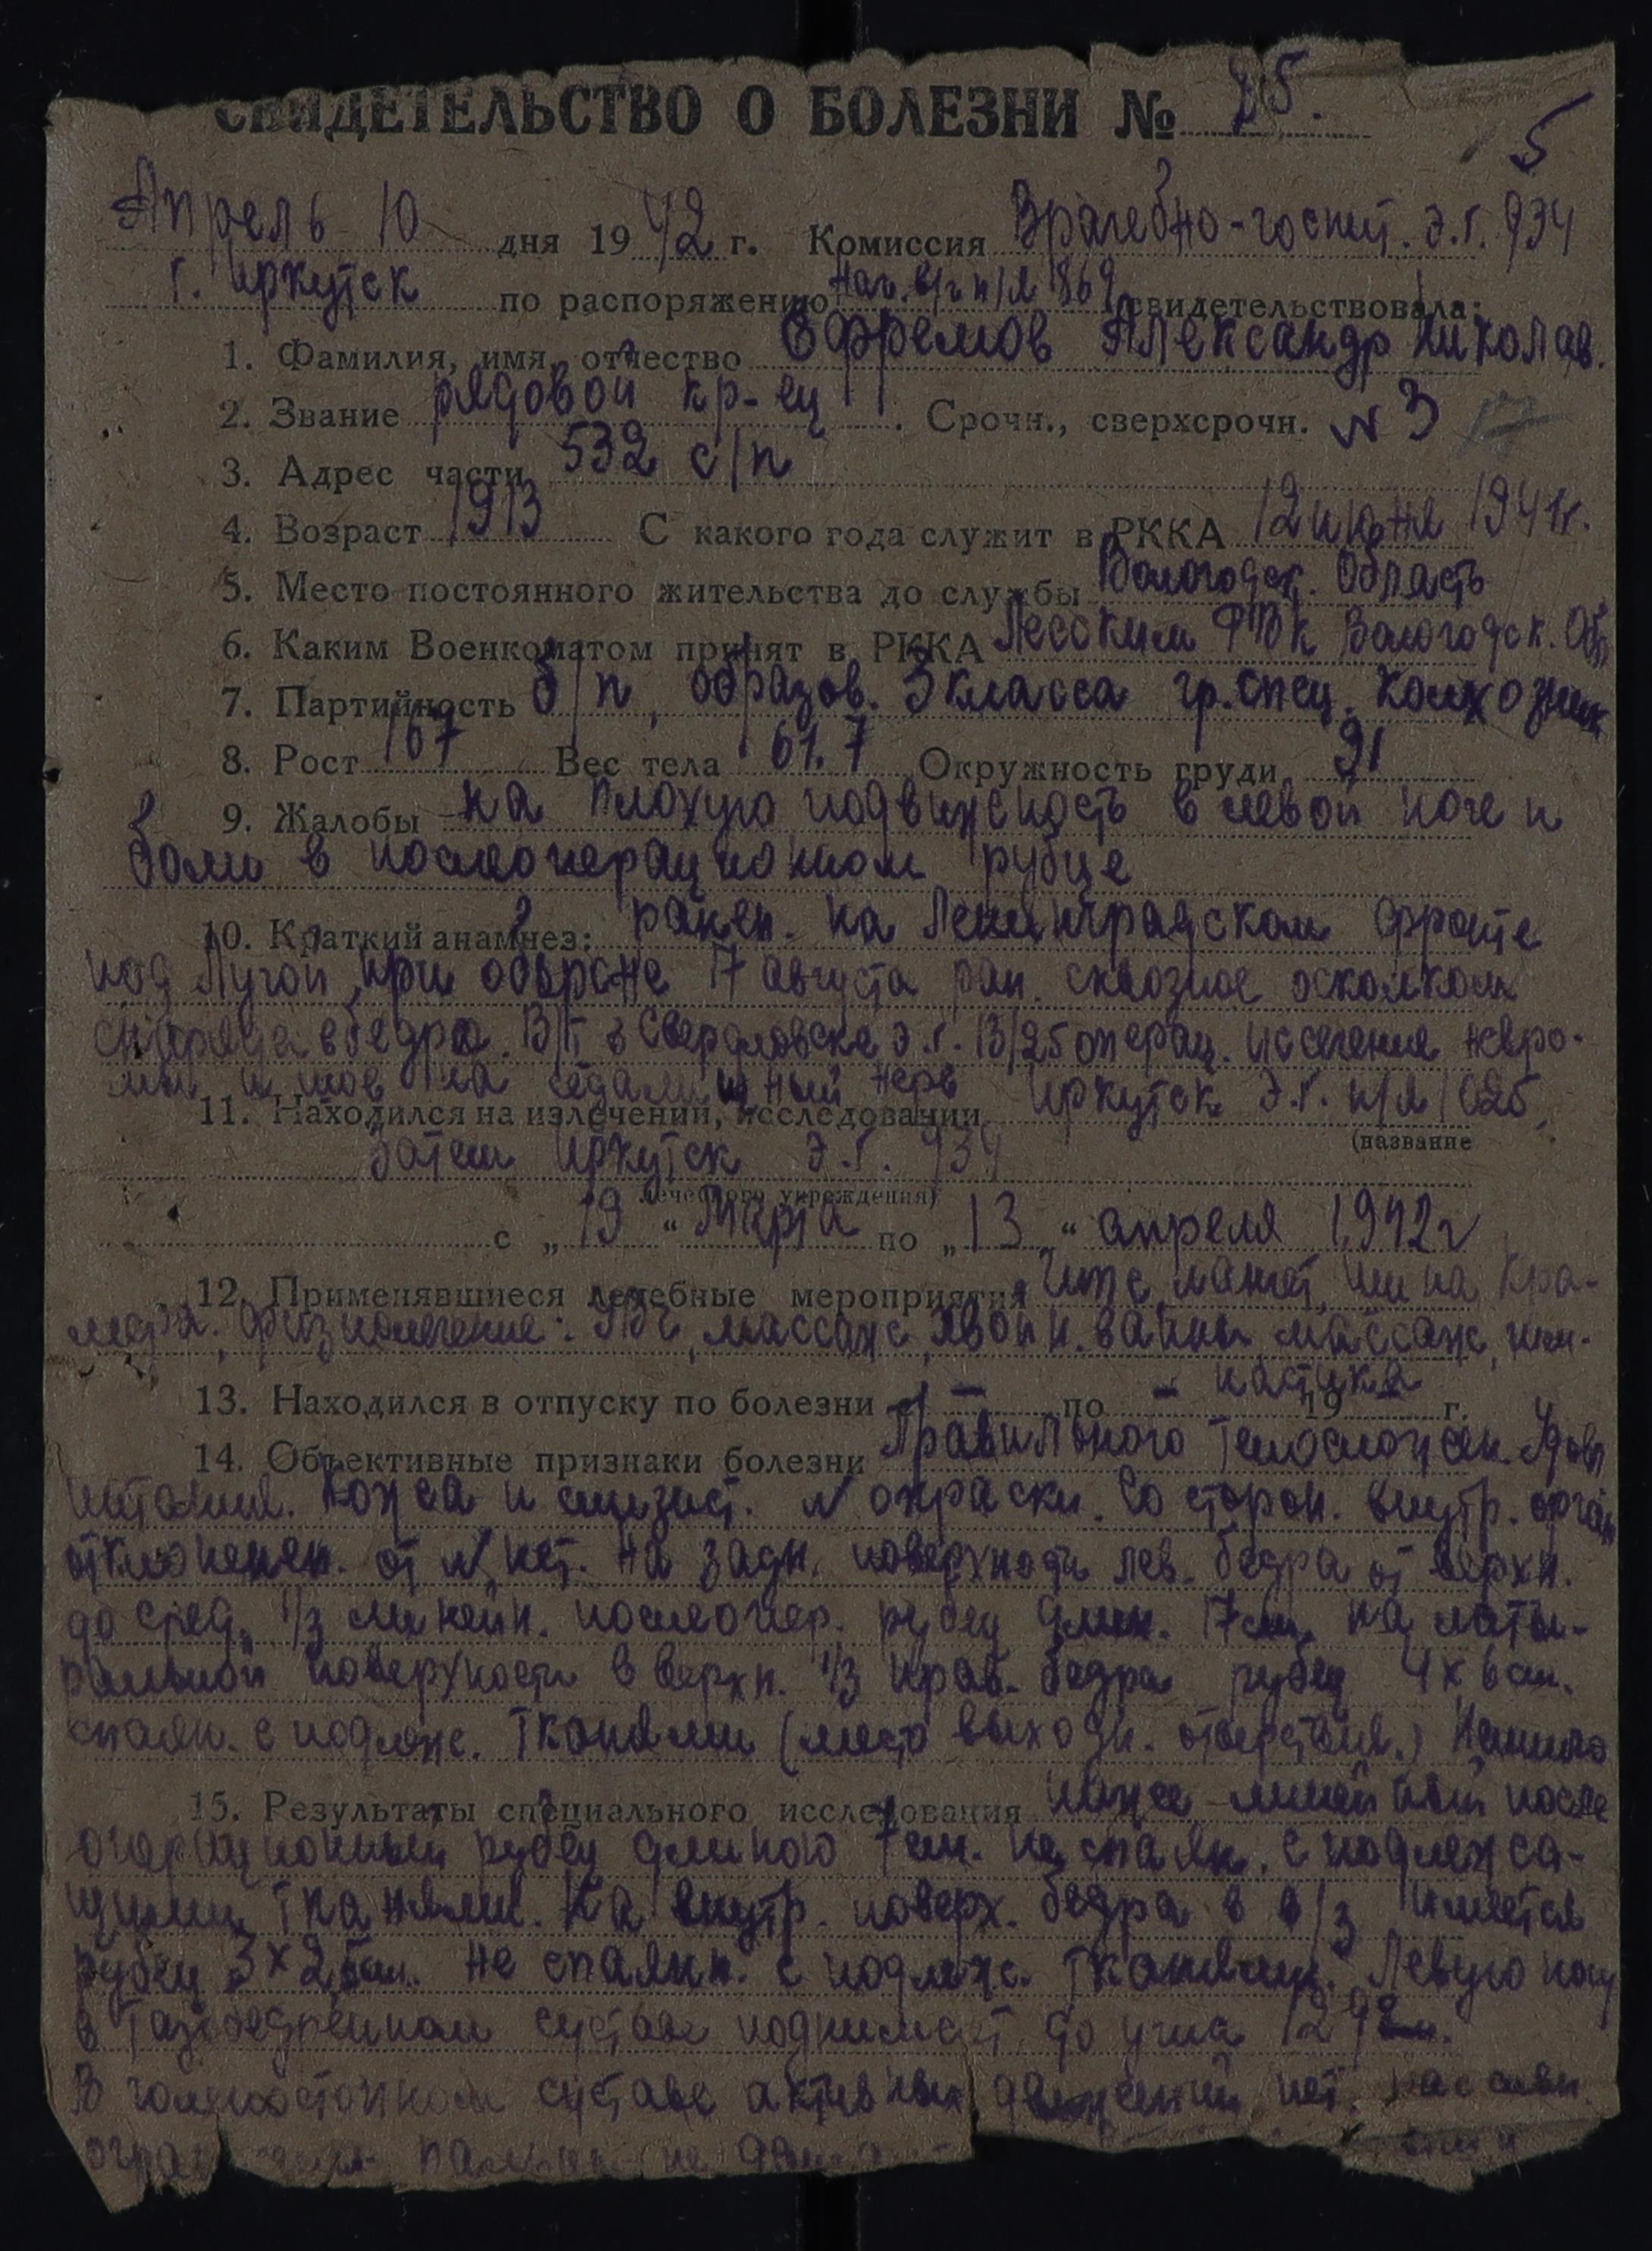 СВИДЕТЕЛЬСТВО О БОЛЕЗНИ № 25.
5
Апрель 10 дня 1942 г. Комиссия Врачебно-госпит. э.г. 934
г. Иркутск по распоряжению Нач. в/г п/я 1869 свидетельствовала:
1. Фамилия, имя, отчество Ефремов Александр Николав.
2. Звание рядовой кр-ец. Срочн., сверхсрочн. N 3
3. Адрес части 532 с/п
4. Возраст 1913 С какого года служит в РККА 12 июня 1941г.
5. Место постоянного жительства до службы Вологодск. Область
6. Каким Военкоматом принят в РККА Вологодск. Обл
7. Партийность б/п, образов. 3 класса гр.спец. колхозник
8. Рост 167 Вес тела 61.7 Окружность груди 91
9. Жалобы на плохую подвижность в левой ноге и
боли в послеоперационном рубце
10. Краткий анамнез: ранен. на Ленинградском фронте
под Лугой при обороне 17 августа ран. сквозное осколком
снаряда в бедро. В/Г в Свердловске э.г. 13/25 операц. иссечения невро-
мы и шов на седалищный нерв
11. Находился на излечении, исследовании Иркутск э.г. п/я 1026,
(название
затем Иркутск э.г. 934
лечебного учреждения)
с „19“ Марта по „13“ апреля 1942г
12. Применявшиеся лечебные мероприятия Гипс лангет, шина Кра-
мера. Физиолечение: УВЧ, массаж, ванны массаж, гим-
настика
13. Находился в отпуску по болезни с — по — 19 г.
14. Объективные признаки болезни Правильного телосложен. Удовл
питания. Кожа и слизист. N окраски. Со сторон. внутр. орган
отклонен. от N нет. На задн. поверхности лев. бедра от верхн.
до сред. 1/3 линейн. послеопер. рубец длин. 17см. на латы-
ральной поверхности в верхн. 1/3 прав. бедра рубец 4х6см.
спаян. с подлеж. тканями (место выходн. отверстия.) Немного
15. Результаты специального исследования ниже линейный после
операционный рубец длиною 7см. не спаян. с подлежа-
щими тканями. На внутр. поверх. бедра в в/3 имеется
рубец 3х2,5см. не спаянн. с подлеж. тканями. Левую ногу
в тазобедренном суставе поднимает до угла
В голеностопном суставе активных движений нет.